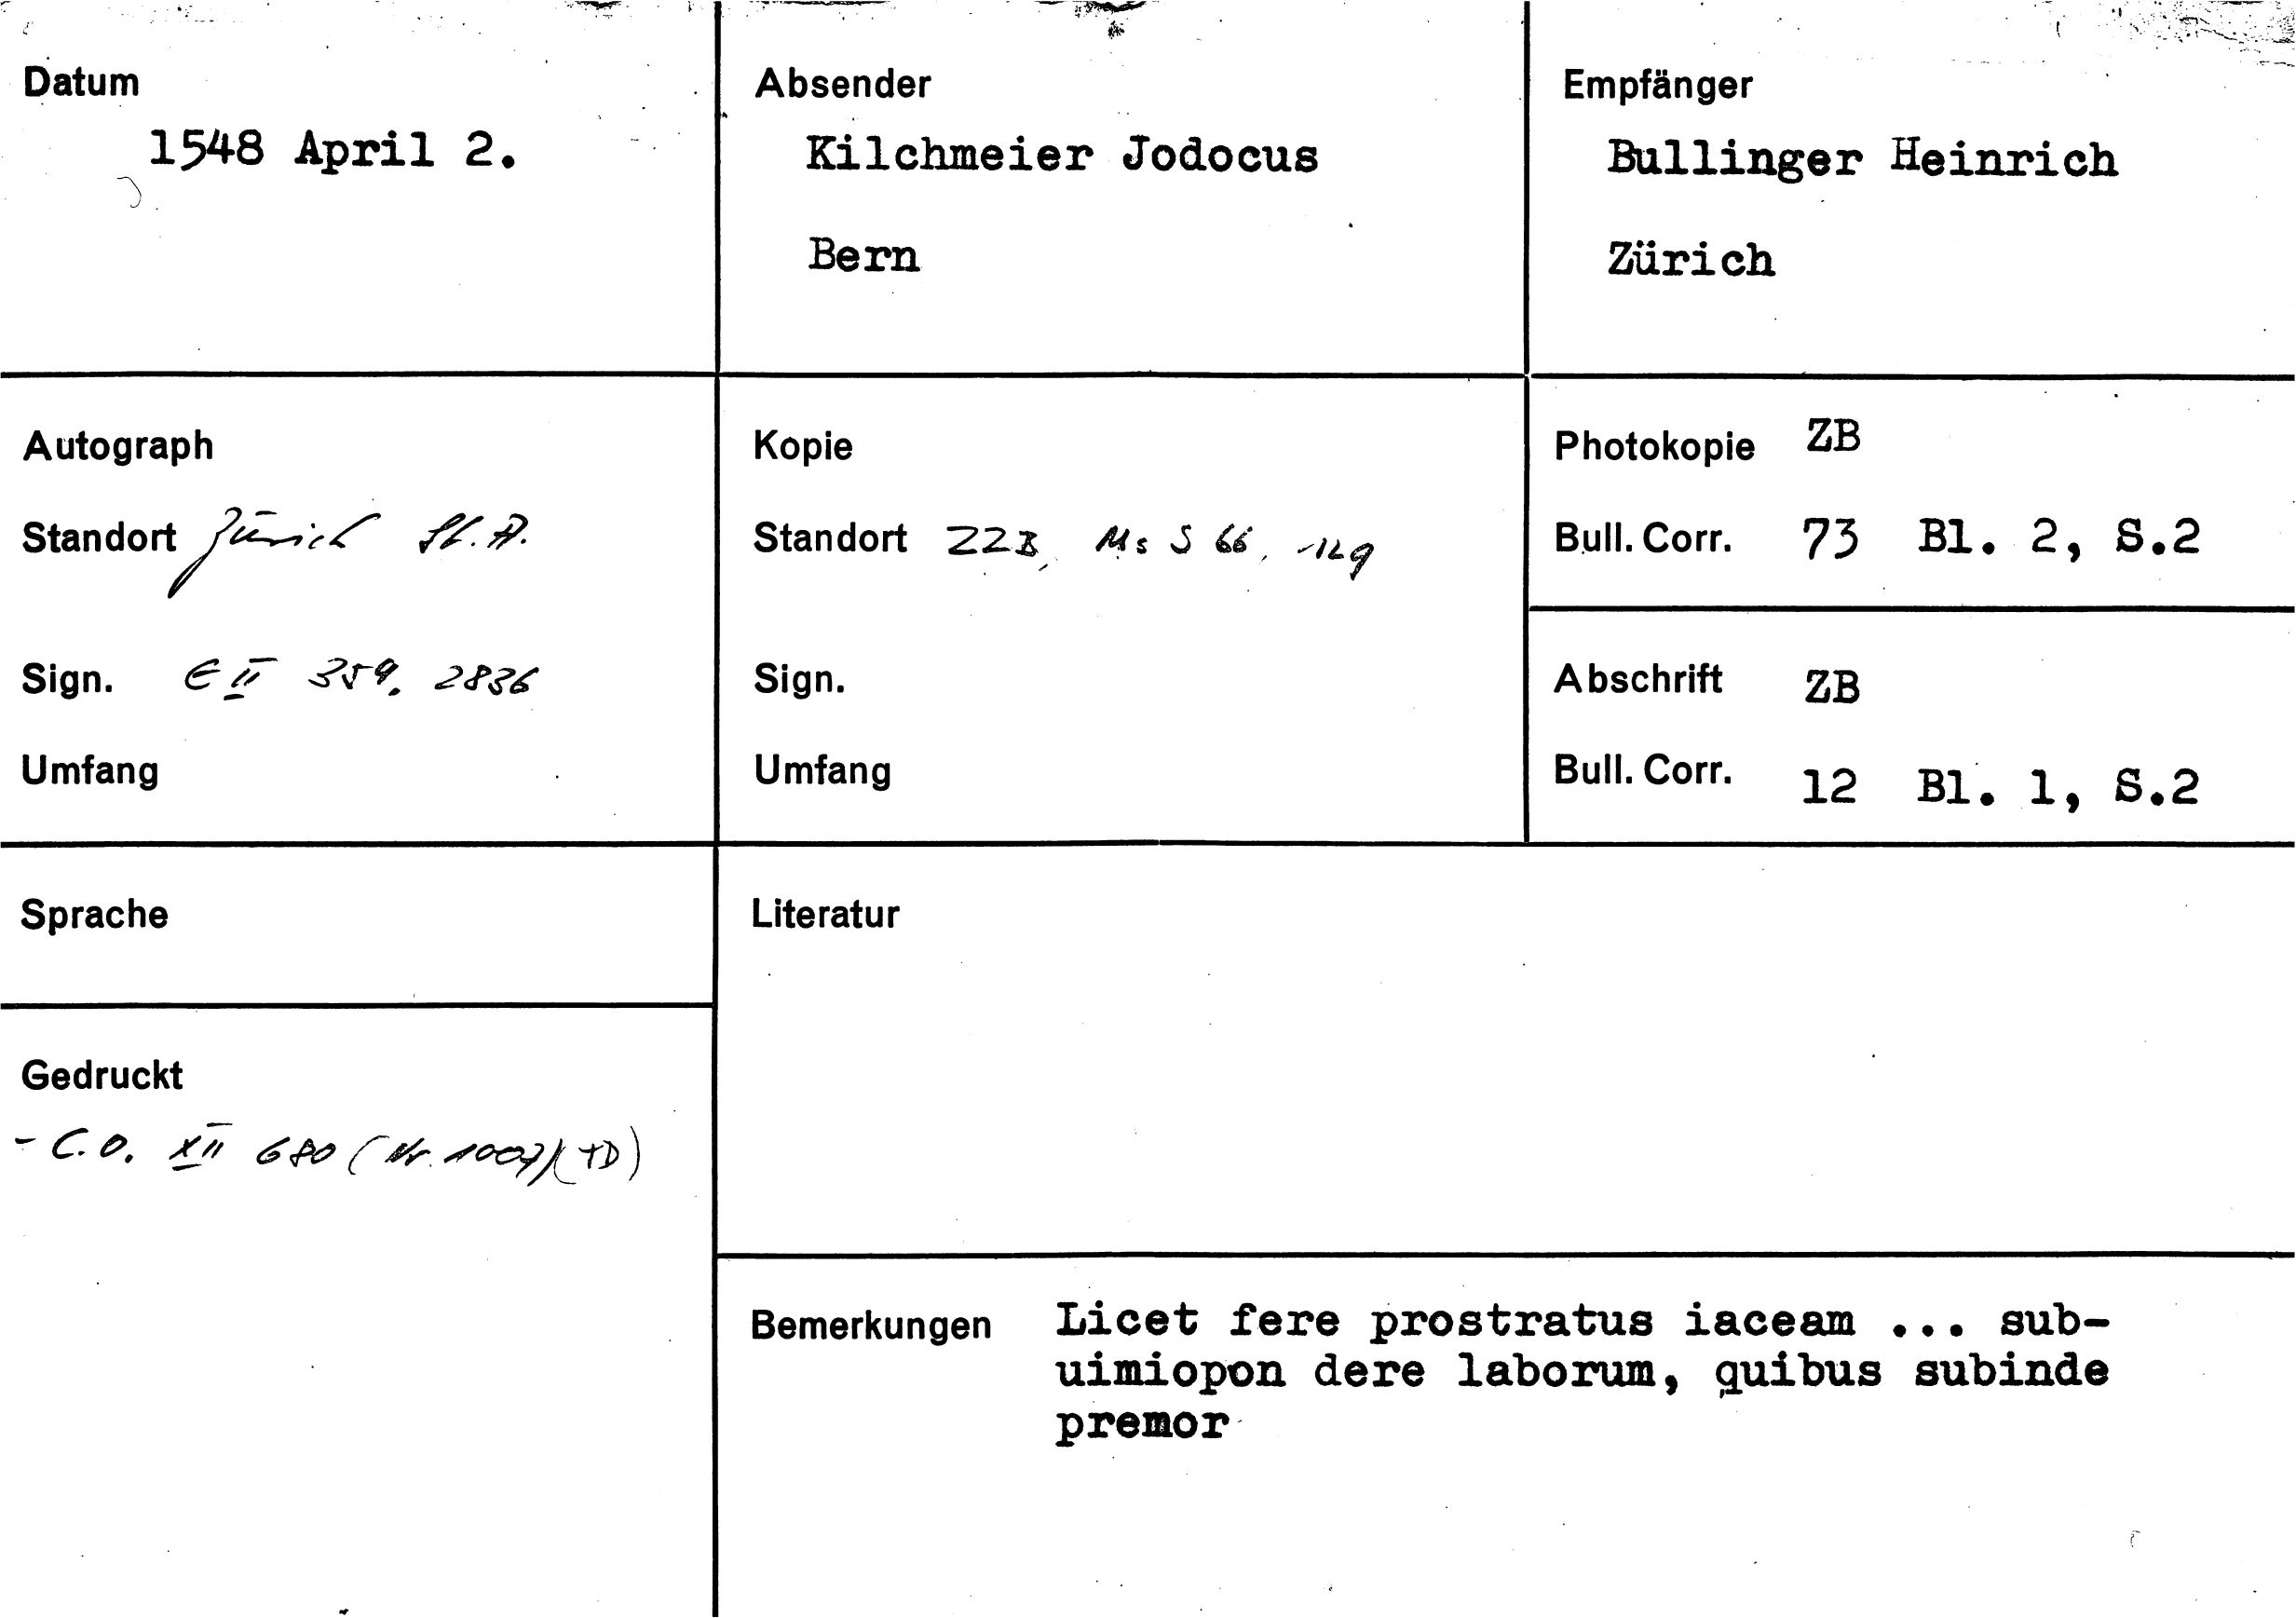 Datum
1548 April 2.
Absender
Kilchmeier Jodocus
Bern
Empfänger
Bullinger Heinrich
Zürich
Autograph
Standort Zürich St. A.
Sign. E II 359, 2836
Umfang
Kopie
Standort ZZB, Ms S 66, 129
Sign.
Umfang
Photokopie ZB
Bull. Corr. 73 Bl. 2, S.2
Abschrift ZB
Bull. Corr. 12 Bl. 1, S.2
Sprache
Literatur
Gedruckt
- C.O. XII 680 (Nr. 1007) (TD)
Bemerkungen Licet fere prostratus iaceam ... sub-
uimiopon dere laborum, quibus subinde
premor